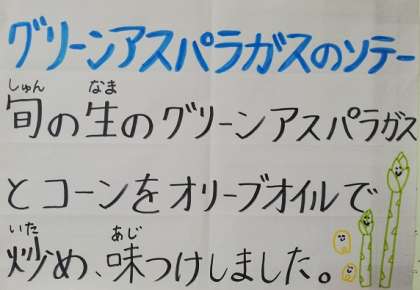 グリーンアスパラガスのソテー
しゅん なま
旬の生のグリーンアスパラガス
とコーンをオリーブオイルで
いた あじ
炒め、味つけしました。